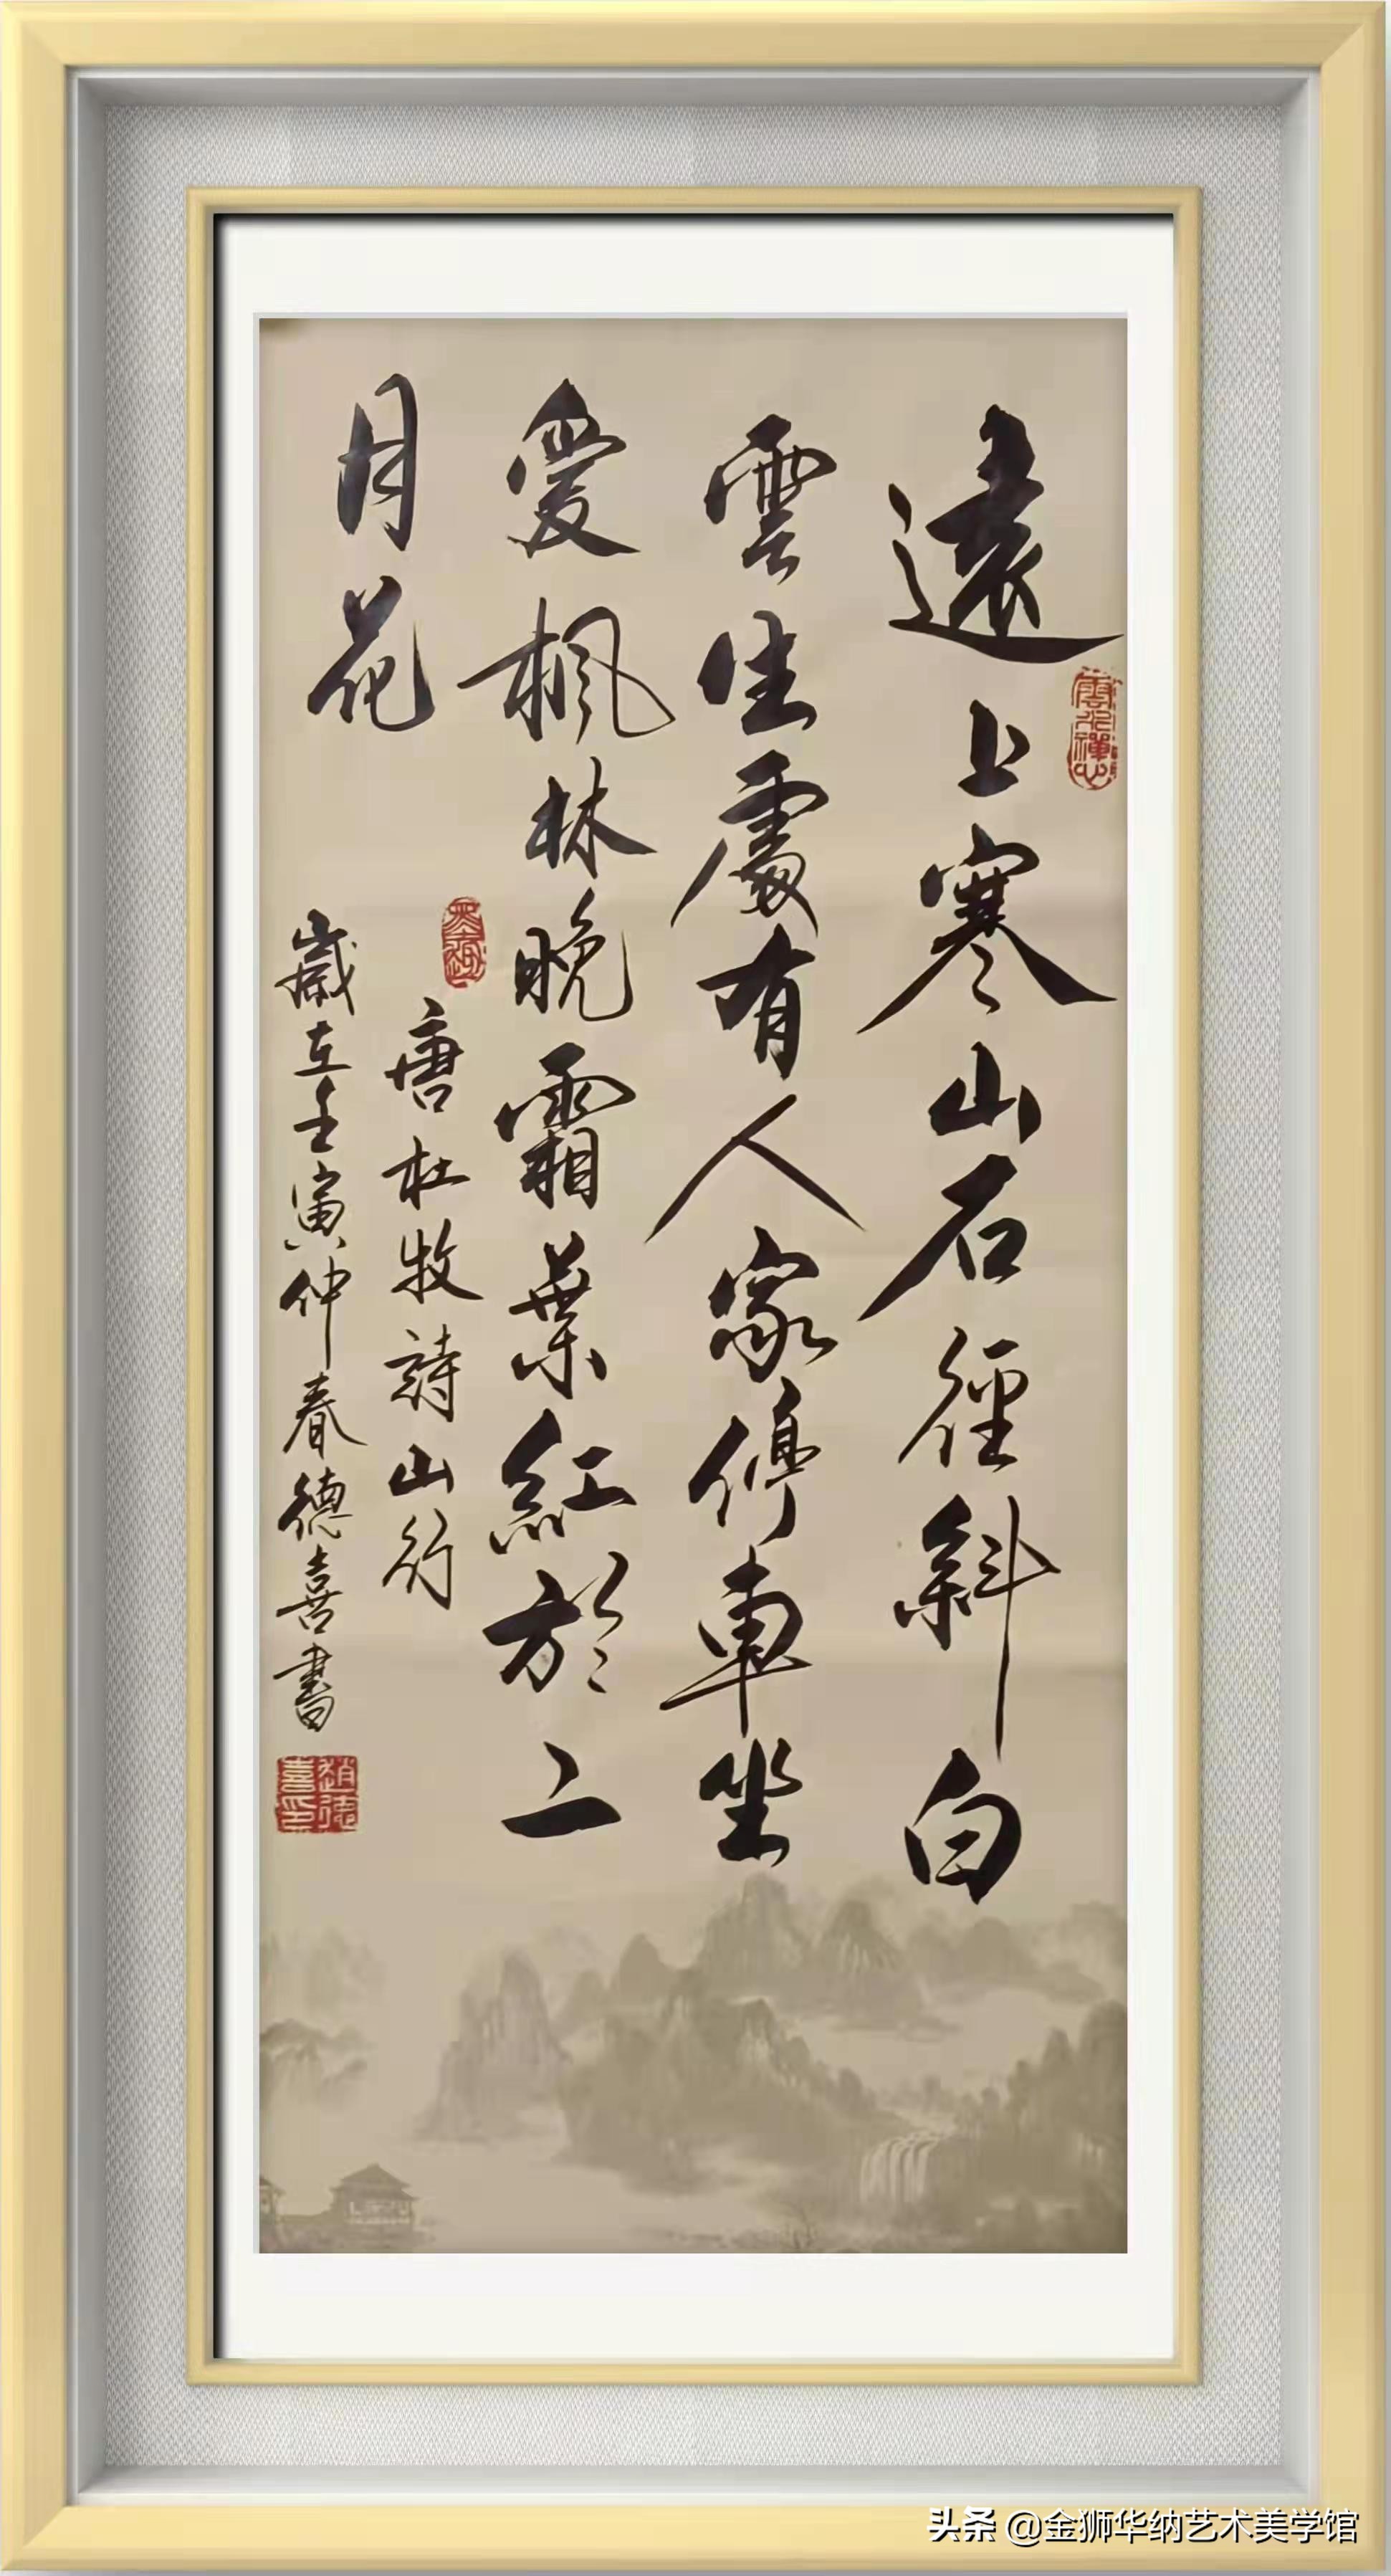 遠上寒山石徑斜白
雲生處有人家停車坐
愛楓林晚霜葉紅於二
月花
唐杜牧詩山行
歲在壬寅仲春德喜書
趙德喜印
头条 @金狮华纳艺术美学馆